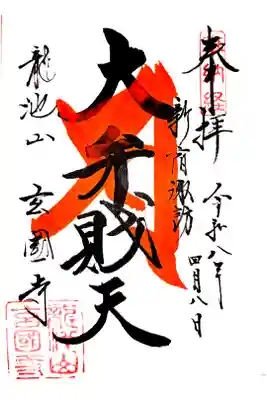 奉拝
令和八年
四月八日
新宿諏訪
大弁財天
龍池山 玄國寺
龍池山
玄國寺